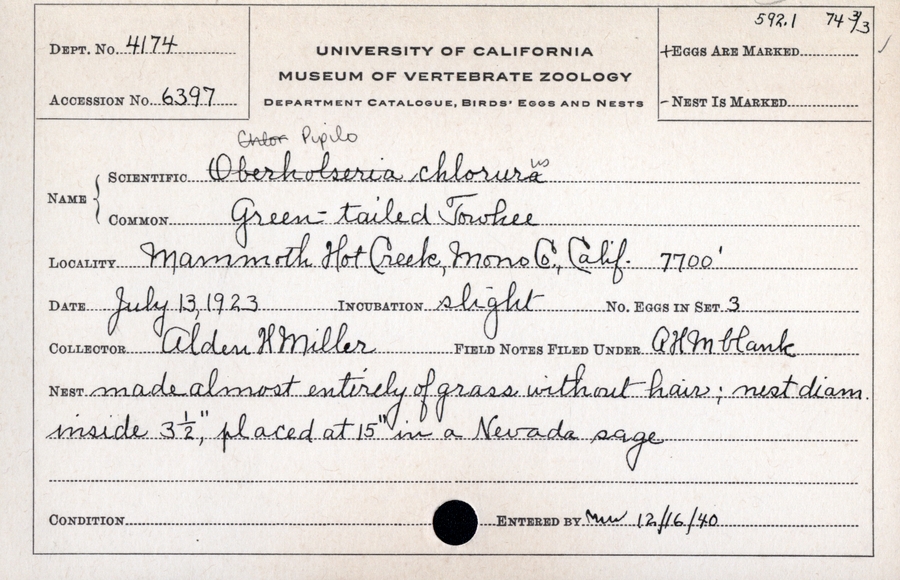 592.1 74 3/3
DEPT. NO. 4174
UNIVERSITY OF CALIFORNIA
+EGGS ARE MARKED
MUSEUM OF VERTEBRATE ZOOLOGY
ACCESSION NO. 6397
DEPARTMENT CATALOGUE, BIRDS' EGGS AND NESTS
- NEST IS MARKED
Chlor Pipilo
NAME
SCIENTIFIC Oberholseria chlorura us
COMMON Green-tailed Towhee
LOCALITY Mammoth Hot Creek, Mono Co., Calif. 7700'
DATE July 13, 1923 INCUBATION slight NO. EGGS IN SET 3
COLLECTOR Alden H Miller FIELD NOTES FILED UNDER AHM blank
NEST made almost entirely of grass without hair; nest diam.
inside 3 1/2", placed at 15" in a Nevada sage
CONDITION ENTERED BY 12/16/40